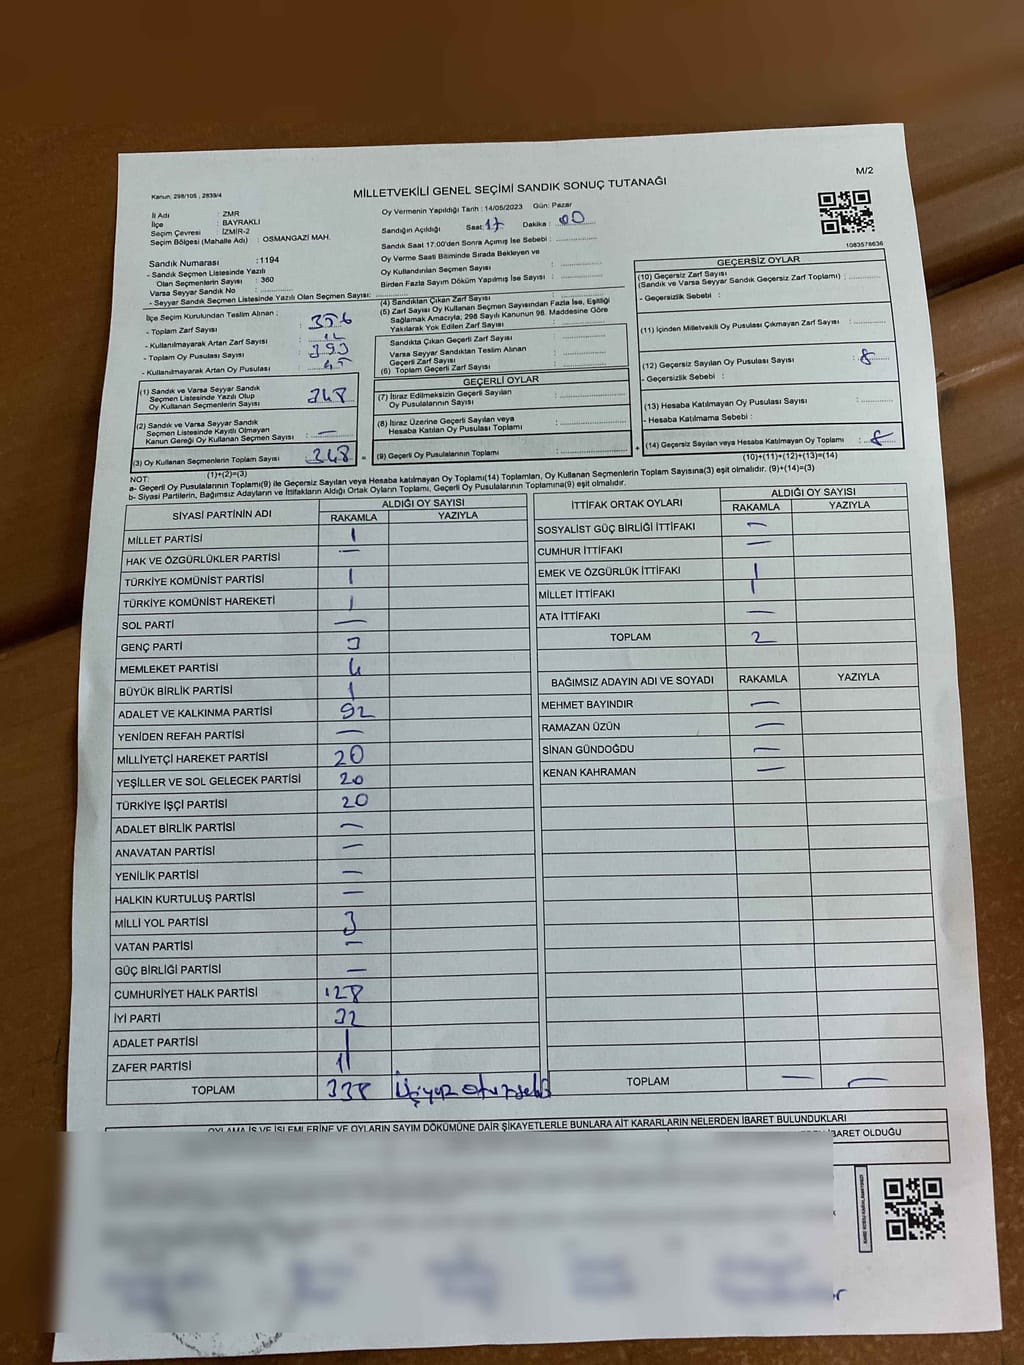 M/2
Kanun, 298/105 , 2839/4
MİLLETVEKİLİ GENEL SEÇİMİ SANDIK SONUÇ TUTANAĞI
İl Adı : ZMR
İlçe : BAYRAKLI
Seçim Çevresi : İZMİR-2
Seçim Bölgesi (Mahalle Adı) : OSMANGAZİ MAH.
Oy Vermenin Yapıldığı Tarih : 14/05/2023 Gün: Pazar
Sandığın Açıldığı Saat: 17 Dakika : 00
Sandık Saat 17.00'den Sonra Açımış İse Sebebi :
Oy Verme Saati Bitiminde Sırada Bekleyen ve
Oy Kullandırılan Seçmen Sayısı :
Birden Fazla Sayım Döküm Yapılmış İse Sayısı :
1083578636
Sandık Numarası : 1194
- Sandık Seçmen Listesinde Yazılı
Olan Seçmenlerin Sayısı : 360
Varsa Seyyar Sandık No :
- Seyyar Sandık Seçmen Listesinde Yazılı Olan Seçmen Sayısı:
İlçe Seçim Kurulundan Teslim Alınan :
- Toplam Zarf Sayısı : 356
- Kullanılmayarak Artan Zarf Sayısı :
- Toplam Oy Pusulası Sayısı : 393
- Kullanılmayarak Artan Oy Pusulası : 45
(1) Sandık ve Varsa Seyyar Sandık
Seçmen Listesinde Yazılı Olup
Oy Kullanan Seçmenlerin Sayısı : 348
(2) Sandık ve Varsa Seyyar Sandık
Seçmen Listesinde Kayıtlı Olmayan
Kanun Gereği Oy Kullanan Seçmen Sayısı : —
(3) Oy Kullanan Seçmenlerin Toplam Sayısı : 348
(1)+(2)=(3)
(4) Sandıktan Çıkan Zarf Sayısı :
(5) Zarf Sayısı Oy Kullanan Seçmen Sayısından Fazla İse, Eşitliği
Sağlamak Amacıyla; 298 Sayılı Kanunun 98. Maddesine Göre
Yakılarak Yok Edilen Zarf Sayısı :
Sandıkta Çıkan Geçerli Zarf Sayısı :
Varsa Seyyar Sandıktan Teslim Alınan
Geçerli Zarf Sayısı :
(6) Toplam Geçerli Zarf Sayısı :
GEÇERLİ OYLAR
(7) İtiraz Edilmeksizin Geçerli Sayılan
Oy Pusulalarının Sayısı :
(8) İtiraz Üzerine Geçerli Sayılan veya
Hesaba Katılan Oy Pusulası Toplamı :
= (9) Geçerli Oy Pusulalarının Toplamı : +
GEÇERSİZ OYLAR
(10) Geçersiz Zarf Sayısı
(Sandık ve Varsa Seyyar Sandık Geçersiz Zarf Toplamı) :
- Geçersizlik Sebebi :
(11) İçinden Milletvekili Oy Pusulası Çıkmayan Zarf Sayısı :
(12) Geçersiz Sayılan Oy Pusulası Sayısı : 8
- Geçersizlik Sebebi :
(13) Hesaba Katılmayan Oy Pusulası Sayısı :
- Hesaba Katılmama Sebebi :
(14) Geçersiz Sayılan veya Hesaba Katılmayan Oy Toplamı : 8
(10)+(11)+(12)+(13)=(14)
NOT:
a- Geçerli Oy Pusulalarının Toplamı(9) ile Geçersiz Sayılan veya Hesaba katılmayan Oy Toplamı(14) Toplamları, Oy Kullanan Seçmenlerin Toplam Sayısına(3) eşit olmalıdır. (9)+(14)=(3)
b- Siyasi Partilerin, Bağımsız Adayların ve İttifakların Aldığı Ortak Oyların Toplamı, Geçerli Oy Pusulalarının Toplamına(9) eşit olmalıdır.
SİYASİ PARTİNİN ADI ALDIĞI OY SAYISI
RAKAMLA YAZIYLA
MİLLET PARTİSİ 1
HAK VE ÖZGÜRLÜKLER PARTİSİ —
TÜRKİYE KOMÜNİST PARTİSİ 1
TÜRKİYE KOMÜNİST HAREKETİ 1
SOL PARTİ —
GENÇ PARTİ 3
MEMLEKET PARTİSİ 4
BÜYÜK BİRLİK PARTİSİ 1
ADALET VE KALKINMA PARTİSİ 92
YENİDEN REFAH PARTİSİ —
MİLLİYETÇİ HAREKET PARTİSİ 20
YEŞİLLER VE SOL GELECEK PARTİSİ 20
TÜRKİYE İŞÇİ PARTİSİ 20
ADALET BİRLİK PARTİSİ —
ANAVATAN PARTİSİ —
YENİLİK PARTİSİ —
HALKIN KURTULUŞ PARTİSİ —
MİLLİ YOL PARTİSİ 3
VATAN PARTİSİ —
GÜÇ BİRLİĞİ PARTİSİ —
CUMHURİYET HALK PARTİSİ 128
İYİ PARTİ 32
ADALET PARTİSİ |
ZAFER PARTİSİ 11
TOPLAM 338 üçyüz otuzsekiz
İTTİFAK ORTAK OYLARI ALDIĞI OY SAYISI
RAKAMLA YAZIYLA
SOSYALİST GÜÇ BİRLİĞİ İTTİFAKI —
CUMHUR İTTİFAKI —
EMEK VE ÖZGÜRLÜK İTTİFAKI 1
MİLLET İTTİFAKI 1
ATA İTTİFAKI —
TOPLAM 2
BAĞIMSIZ ADAYIN ADI VE SOYADI RAKAMLA YAZIYLA
MEHMET BAYINDIR —
RAMAZAN ÜZÜN —
SİNAN GÜNDOĞDU —
KENAN KAHRAMAN —
TOPLAM — —
OYLAMA İŞ VE İŞLEMLERİNE VE OYLARIN SAYIM DÖKÜMÜNE DAİR ŞİKAYETLERLE BUNLARA AİT KARARLARIN NELERDEN İBARET BULUNDUKLARI
İBARET OLDUĞU